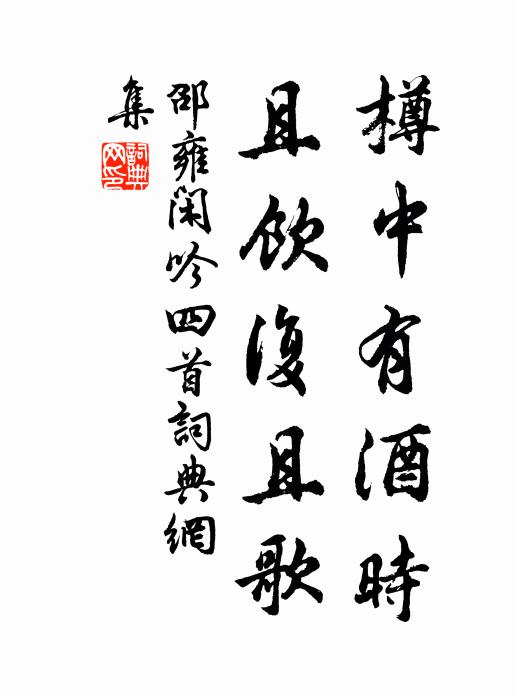 樽中有酒時
且飲復且歌
邵雍閑吟四首詞典網
集
詞典
网印